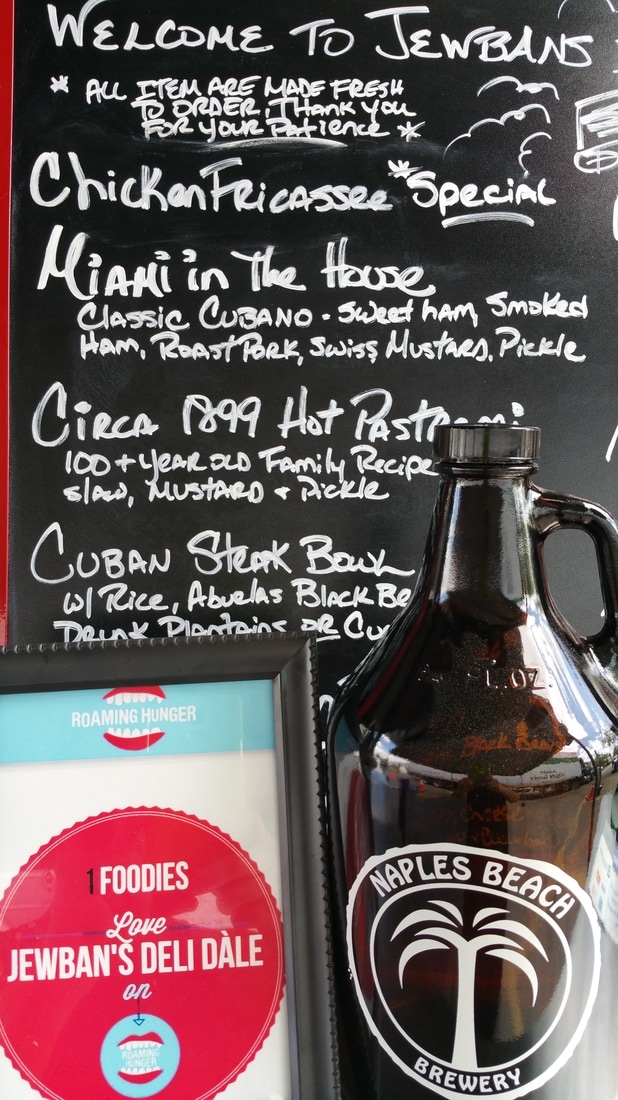 WELCOME TO JEWBANS
* ALL ITEM ARE MADE FRESH
TO ORDER. THANK YOU
FOR YOUR PATIENCE *
Chicken Fricassee *Special
MIAMI in The House
CLASSIC CUBANO - SWEET HAM, SMOKED
HAM, ROAST PORK, SWISS, MUSTARD, PICKLE
CIRCA 1899 HOT PASTRAMI
100 + YEAR OLD FAMILY RECIPE
SLAW, MUSTARD + PICKLE
CUBAN STEAK BOWL
W/ RICE, ABUELAS BLACK BE
DRUNK PLANTAINS OR CU
FL. OZ.
ROAMING HUNGER
1 FOODIES
Love
JEWBAN'S DELI DÀLE
on
ROAMING
HUNGER
NAPLES BEACH
BREWERY